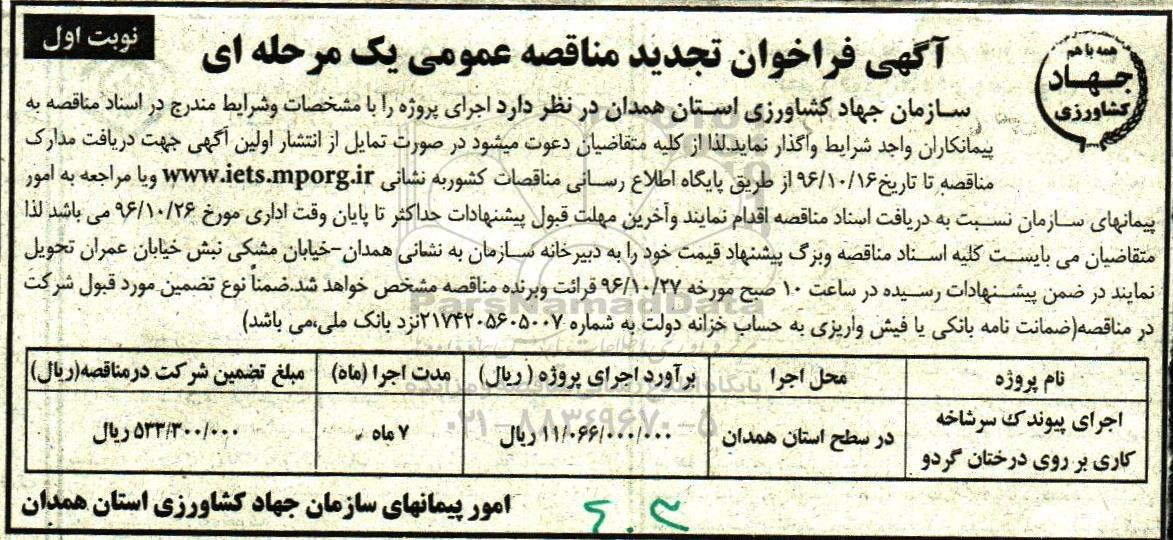 نوبت اول
همه با هم
جهاد
کشاورزی
آگهی فراخوان تجدید مناقصه عمومی یک مرحله ای
سازمان جهاد کشاورزی استان همدان در نظر دارد اجرای پروژه را با مشخصات وشرایط مندرج در اسناد مناقصه به
پیمانکاران واجد شرایط واگذار نماید.لذا از کلیه متقاضیان دعوت میشود در صورت تمایل از انتشار اولین آگهی جهت دریافت مدارک
مناقصه تا تاریخ۹۶/۱۰/۱۶ از طریق پایگاه اطلاع رسانی مناقصات کشوربه نشانی www.iets.mporg.ir ویا مراجعه به امور
پیمانهای سازمان نسبت به دریافت اسناد مناقصه اقدام نمایند وآخرین مهلت قبول پیشنهادات حداکثر تا پایان وقت اداری مورخ ۹۶/۱۰/۲۶ می باشد لذا
متقاضیان می بایست کلیه اسناد مناقصه وبرگ پیشنهاد قیمت خود را به دبیرخانه سازمان به نشانی همدان-خیابان مشکی نبش خیابان عمران تحویل
نمایند در ضمن پیشنهادات رسیده در ساعت ۱۰ صبح مورخه ۹۶/۱۰/۲۷ قرائت وبرنده مناقصه مشخص خواهد شد.ضمناً نوع تضمین مورد قبول شرکت
در مناقصه(ضمانت نامه بانکی یا فیش واریزی به حساب خزانه دولت به شماره ۲۱۷۴۲۰۵۶۰۵۰۰۷نزد بانک ملی،می باشد)
نام پروژه محل اجرا برآورد اجرای پروژه ( ریال) مدت اجرا (ماه) مبلغ تضمین شرکت درمناقصه(ریال)
اجرای پیوندک سرشاخه کاری بر روی درختان گردو در سطح استان همدان ۱۱/۰۶۶/۰۰۰/۰۰۰ ریال ۷ ماه ۵۳۳/۳۰۰/۰۰۰ ریال
امور پیمانهای سازمان جهاد کشاورزی استان همدان
ParsNamadData
۰۲۱-۸۸۳۴۹۶۷۰-۵